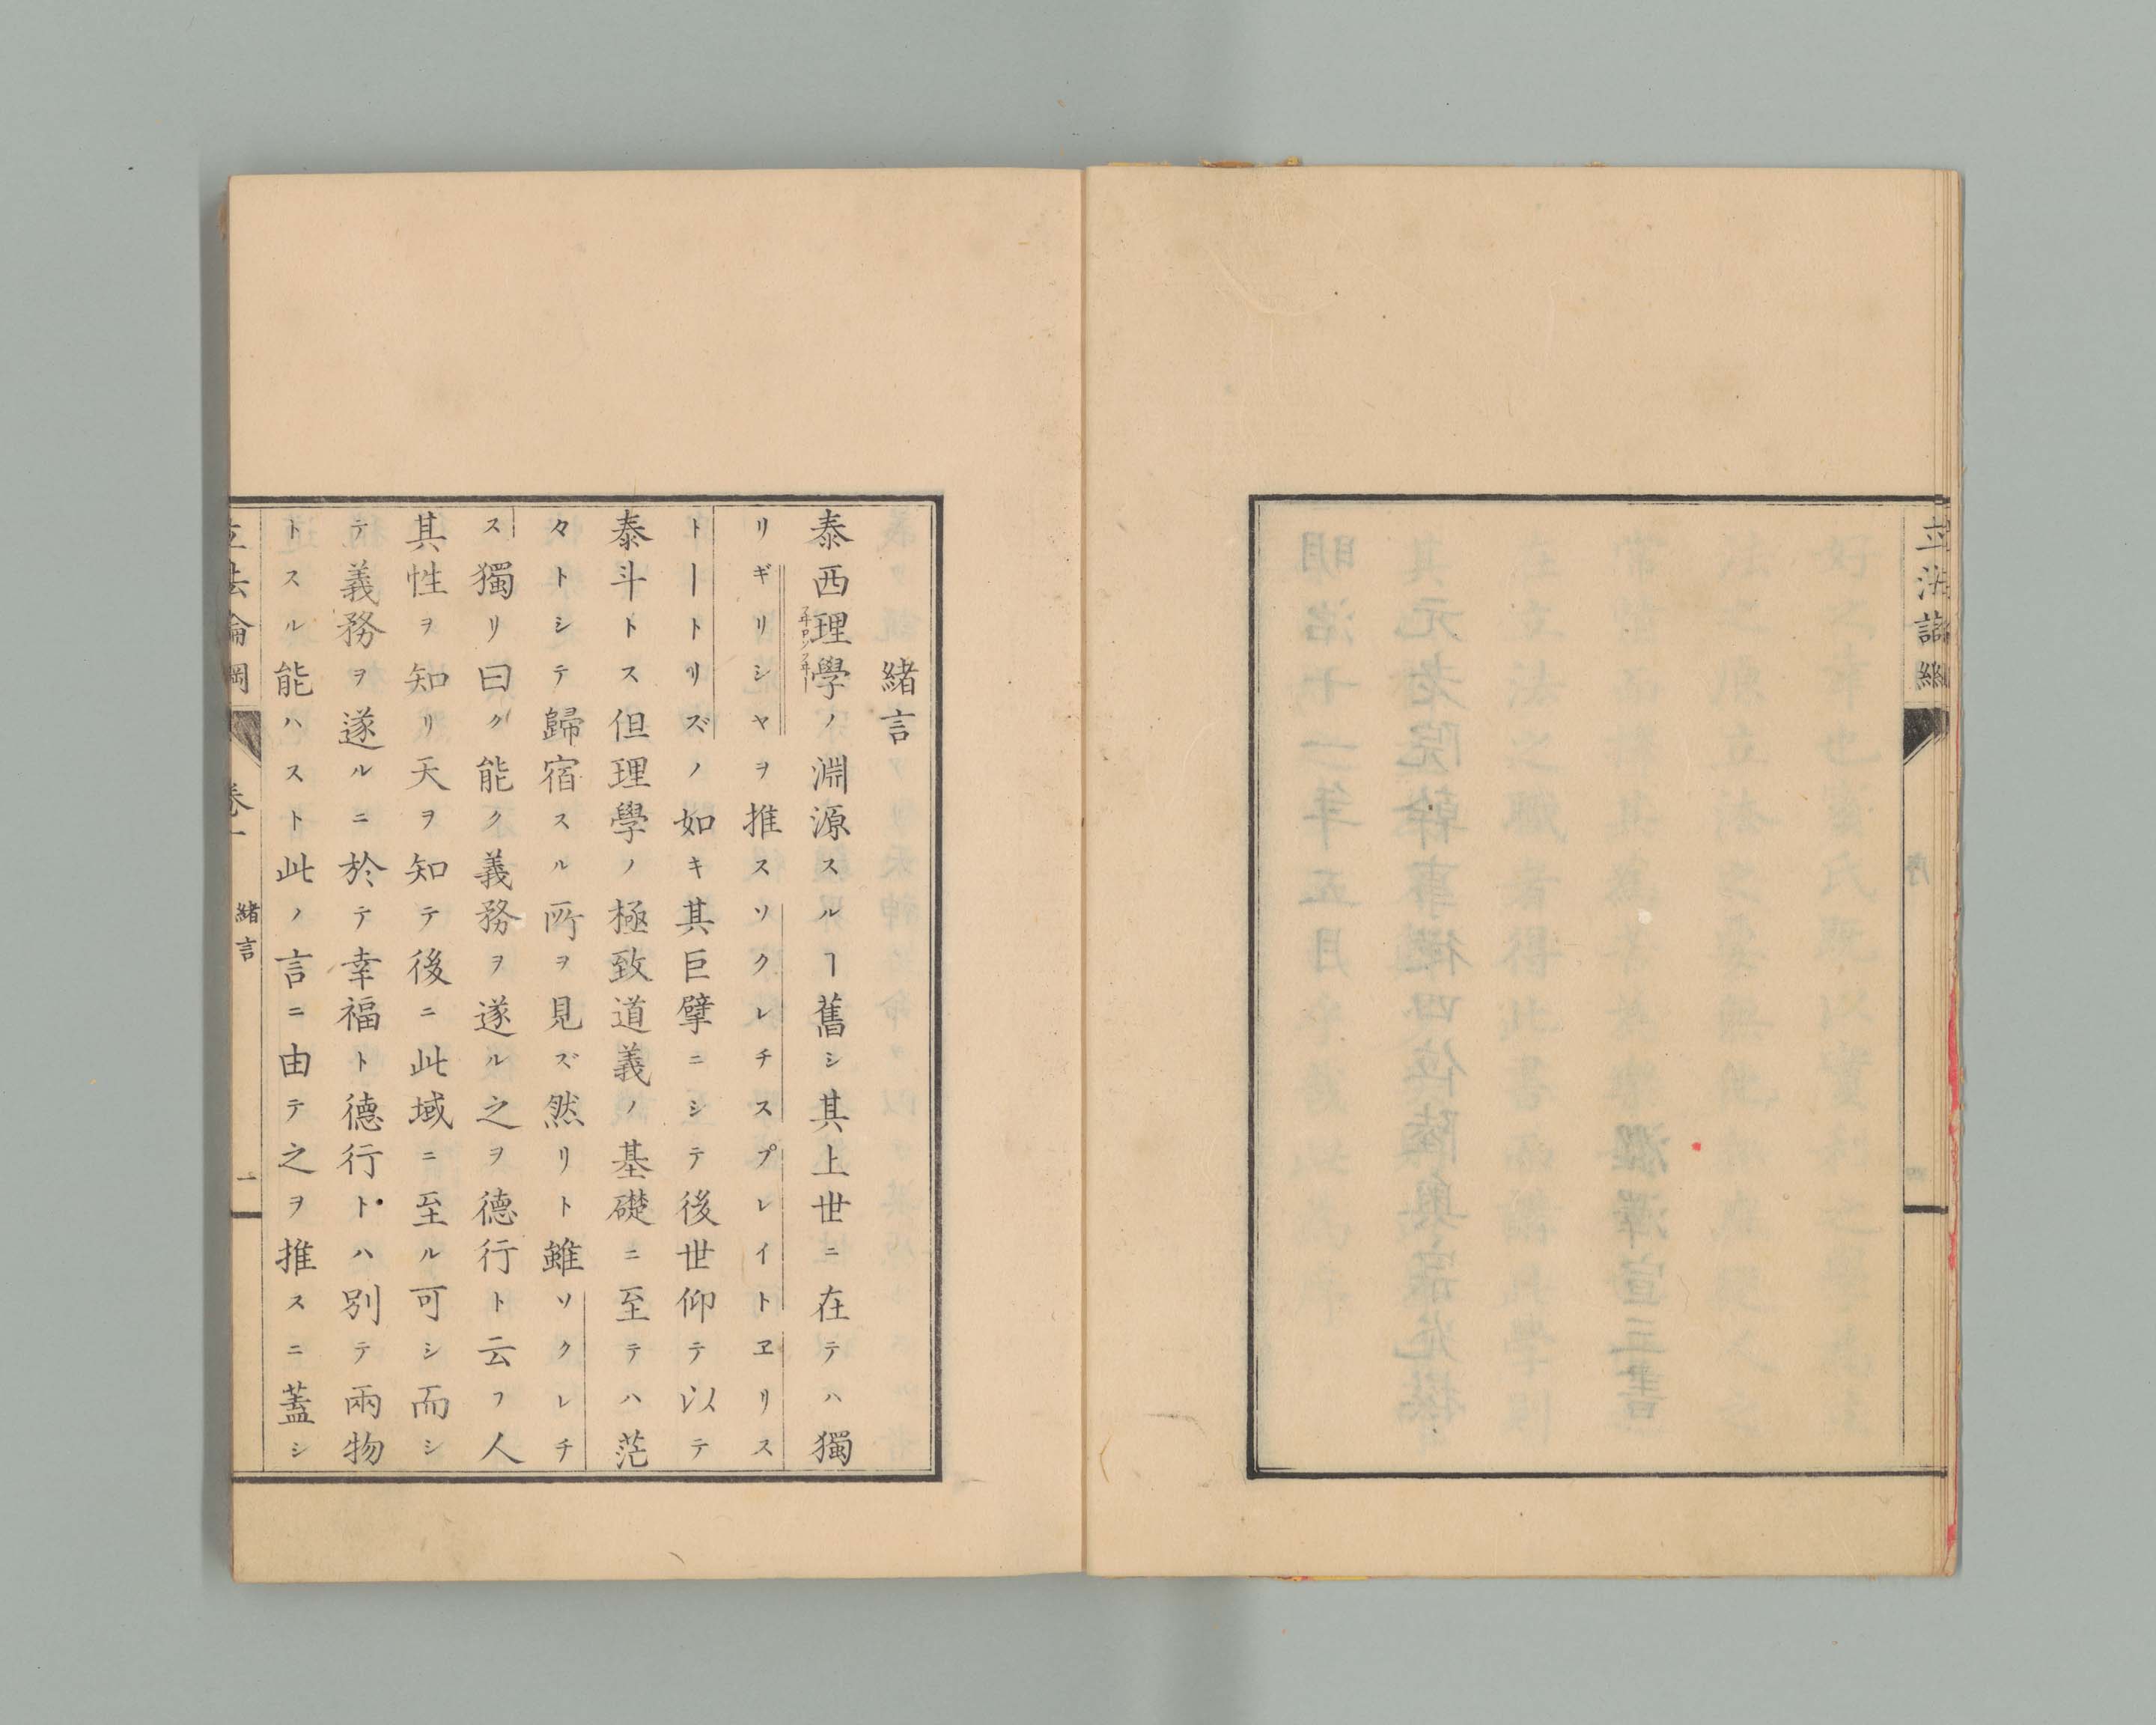 立法論綱
緒言
泰西理學ノ淵源スルヿ舊シ其上世ニ在テハ獨
リギリシヤヲ推スソクレチスプレイトヱリス
トートリズノ如キ其巨擘ニシテ後世仰テ以テ
泰斗トス但理學ノ極致道義ノ基礎ニ至テハ茫
々トシテ歸宿スル所ヲ見ズ然リト雖ソクレチ
ス獨リ曰ク能ク義務ヲ遂ル之ヲ德行ト云フ人
其性ヲ知リ天ヲ知テ後ニ此域ニ至ル可シ而シ
テ義務ヲ遂ルニ於テ幸福ト德行トハ別テ兩物
トスル能ハスト此ノ言ニ由テ之ヲ推スニ蓋シ
立法論綱 卷一 緒言 一